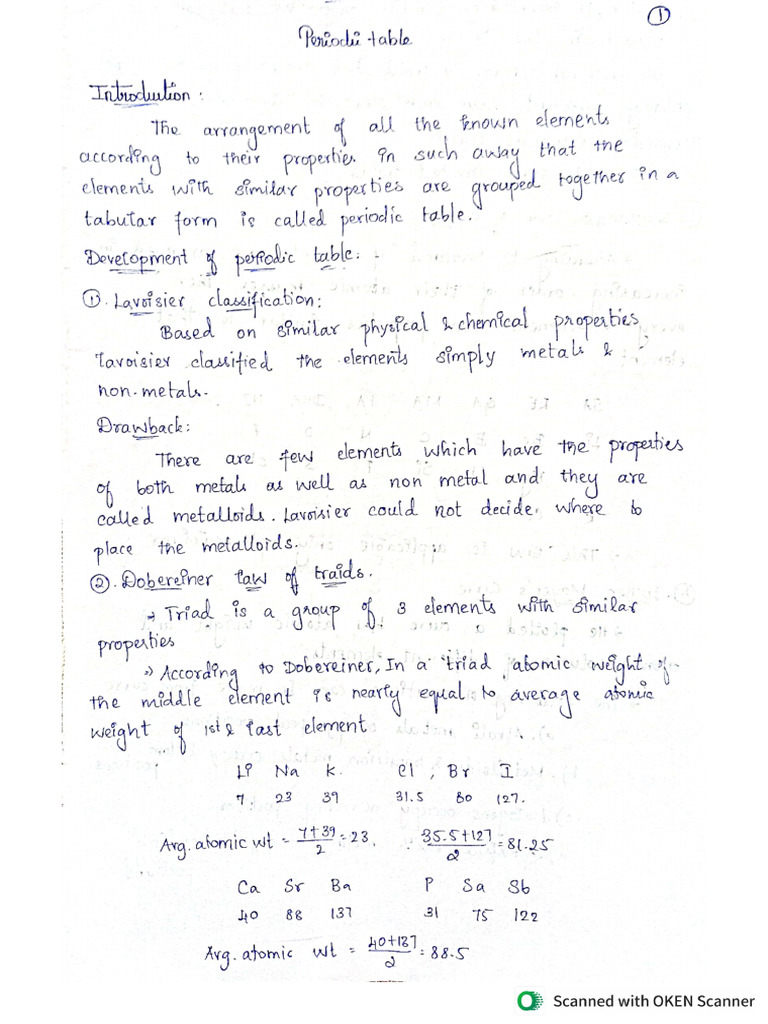 1
Periodic table
Introduction :
The arrangement of all the known elements
according to their properties in such away that the
elements with similar properties are grouped together in a
tabular form is called periodic table.
Development of periodic table: -
①. Lavoisier classification:
Based on similar physical & chemical properties,
lavoisier classified the elements simply metals &
non-metals.
Drawback:
There are few elements which have the properties
of both metals as well as non metal and they are
called metalloids. Lavoisier could not decide where to
place the metalloids.
②. Dobereiner law of traids.
→ Triad is a group of 3 elements with similar
properties
→ According to Dobereiner, In a triad atomic weight of
the middle element is nearly equal to average atomic
weight of 1st & last element
Li Na K. Cl , Br I
7 23 39 31.5 80 127.
Avg. atomic wt = 7+39/2 = 23. 35.5+127/2 = 81.25
Ca Sr Ba P Sa Sb
40 88 137 31 75 122
Avg. atomic wt = 40+137/2 = 88.5
Scanned with OKEN Scanner